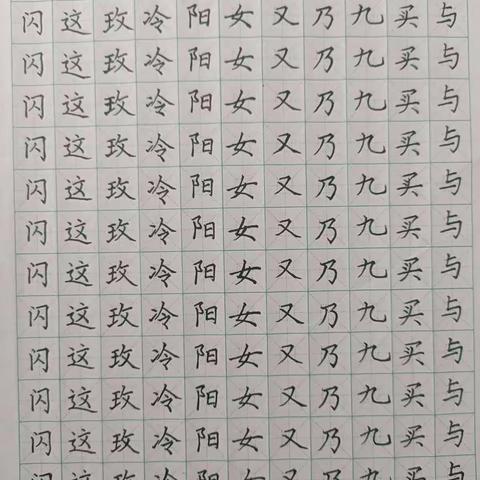 闪这玫冷阳女又乃九买与
闪这玫冷阳女又乃九买与
闪这玫冷阳女又乃九买与
闪这玫冷阳女又乃九买与
闪这玫冷阳女又乃九买与
闪这玫冷阳女又乃九买与
闪这玫冷阳女又乃九买与
闪这玫冷阳女又乃九买与
闪这玫冷阳女又乃九买与
闪这玫冷阳女又乃九买与
闪这玫冷阳女又乃九买与
闪这玫冷阳女又乃九买与